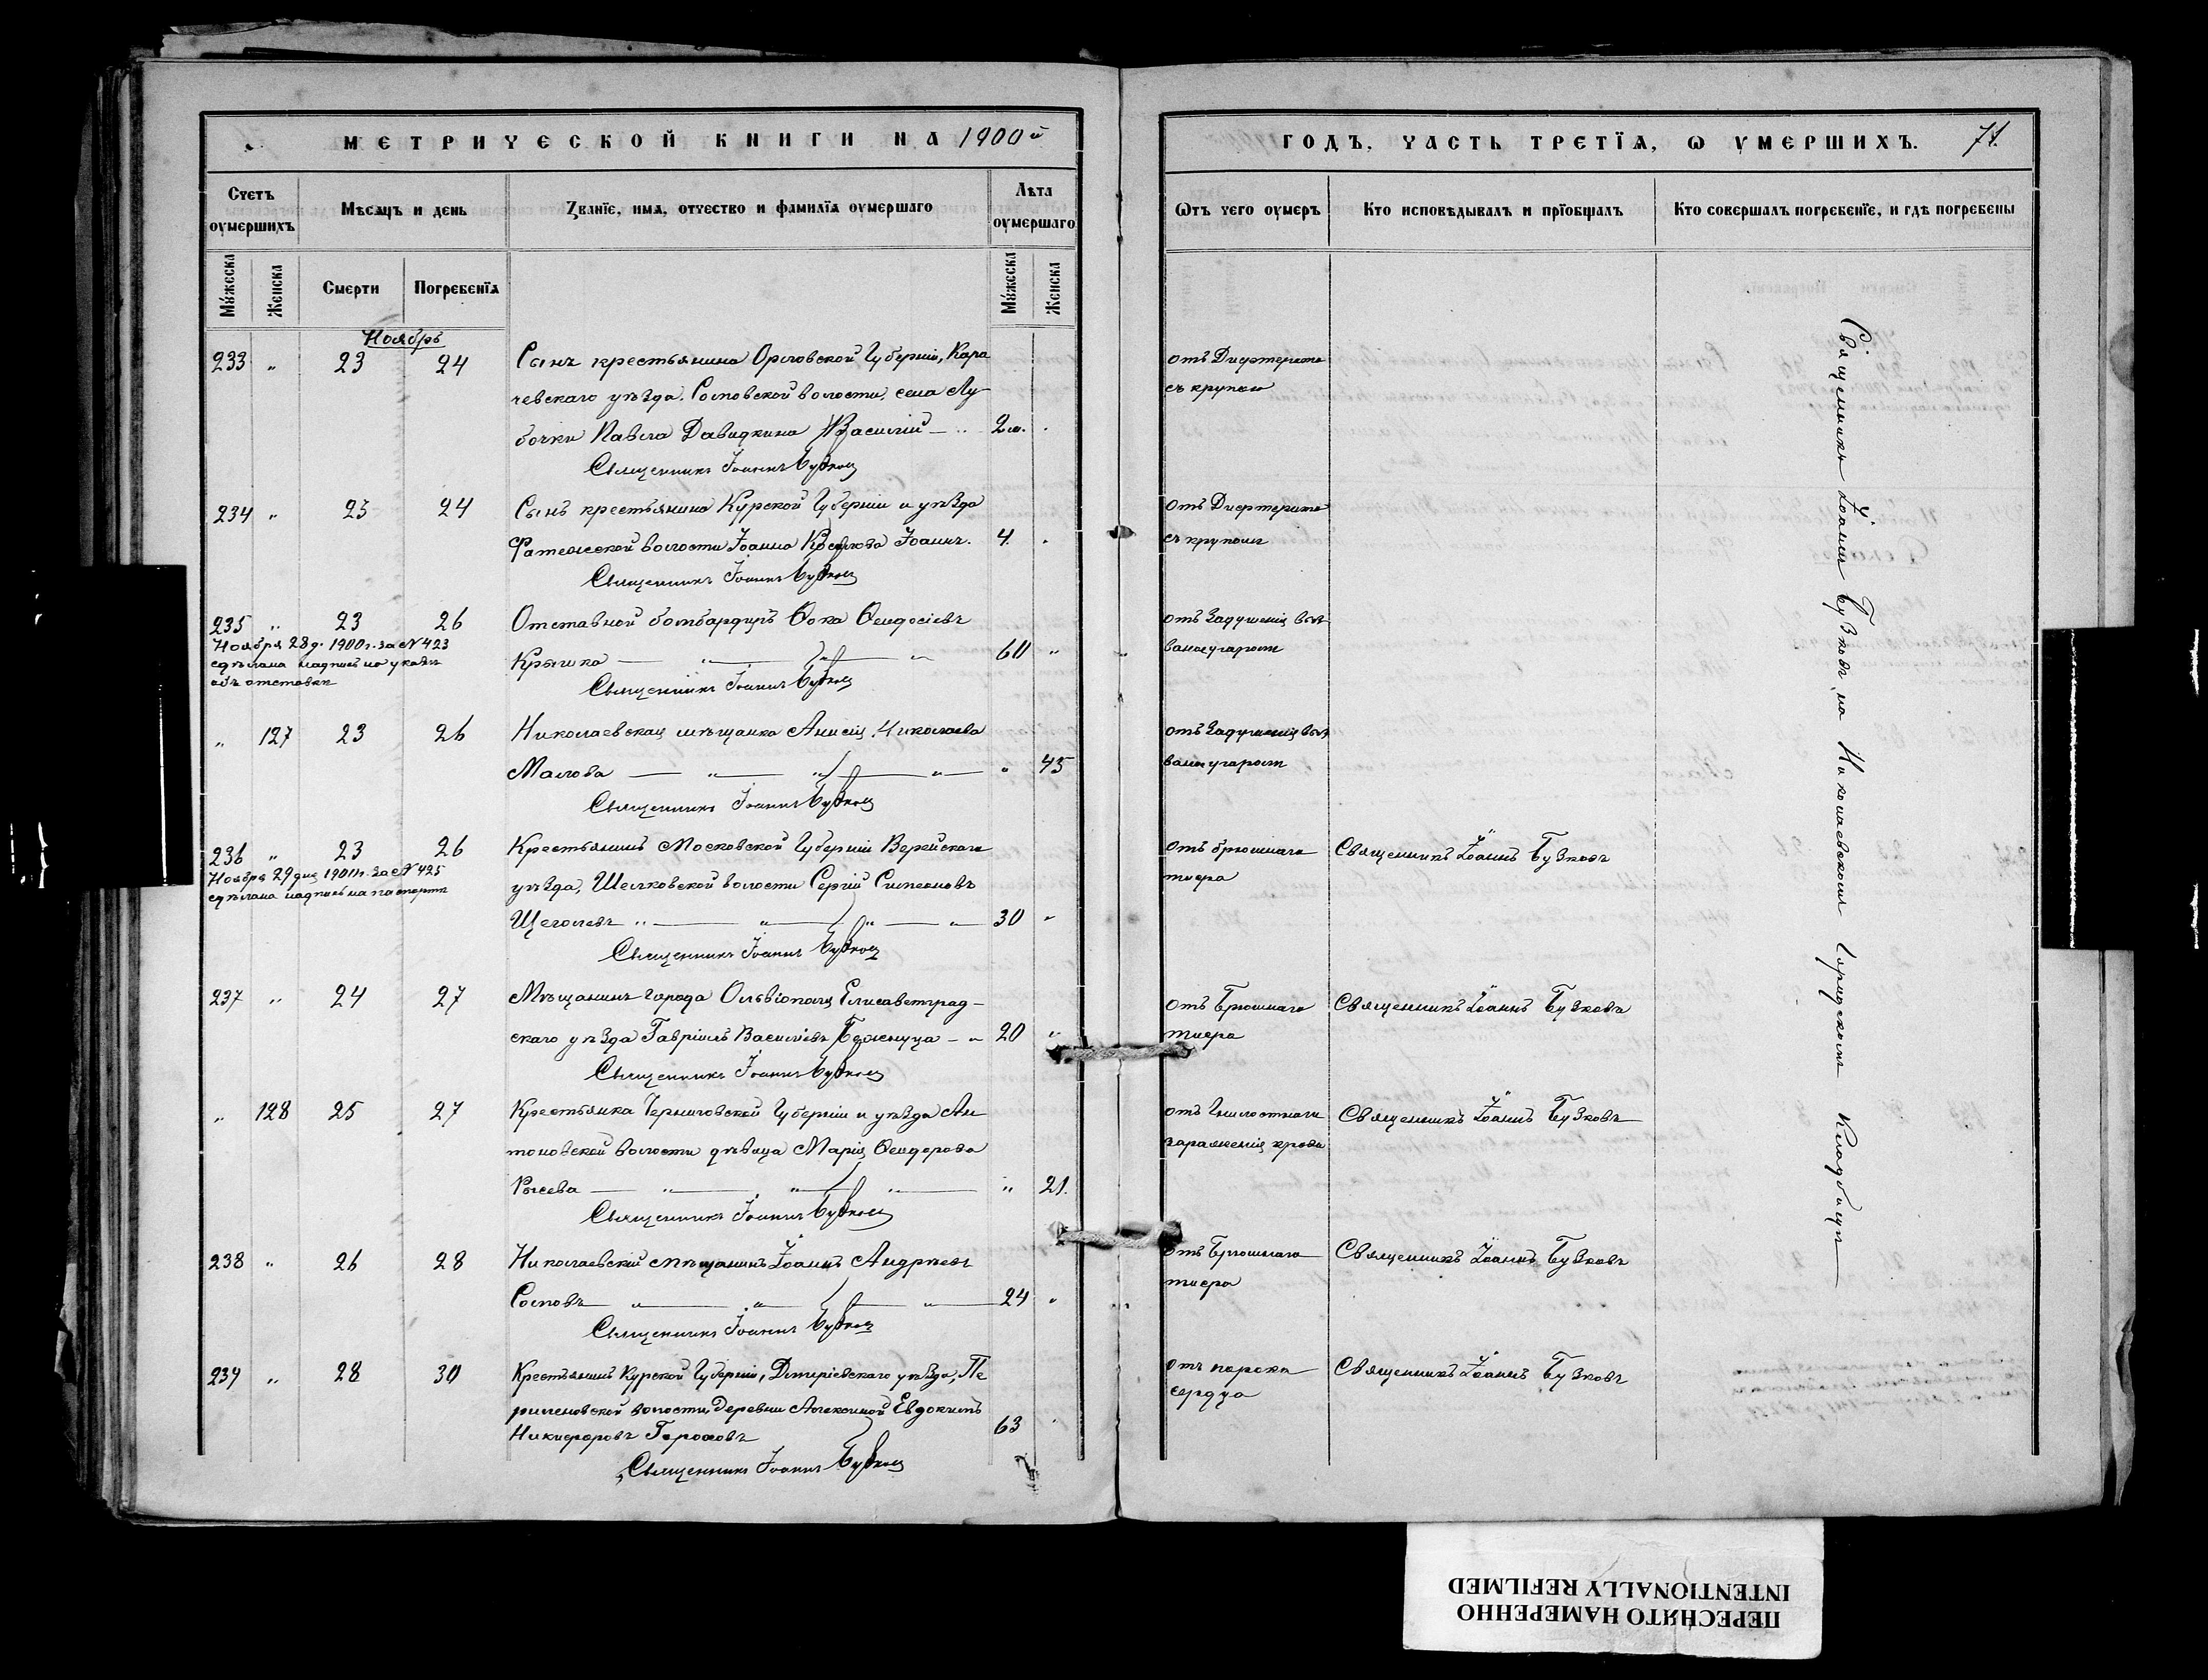 МЕТРИЧЕСКОЙ КНИГИ НА 1900й
Счетъ оумершихъ
Мѣсяцъ и день
Званїе, имя, отчество и фамилїя оумершаго
Лѣта оумершаго
Мужеска
Женска
Смерти
Погребенїя
Мужеска
Женска
Ноябрь
233 " 23 24 Сынъ крестьянина Орловской Губерніи, Кара
чевскаго уѣзда, волости, села Лу
бочки Павла Давидкина Василій 2
Священникъ Іоаннъ Бузковъ
234 " 23 24 Сынъ крестьянина Курской Губерніи и уѣзда
волости Іоанна Іоаннъ. 4.
Священникъ Іоаннъ Бузковъ
235 " 23 26 Отставной бомбардиръ Ѳока Ѳеодосіевъ
Ноября 28 д. 1900 г. за № 423
сдѣлана надпись на указѣ
объ отставкѣ
60 "
Священникъ Іоаннъ Бузковъ
" 127 23 26 Николаевская мѣщанка Анисія Николаева
Малова " 45
Священникъ Іоаннъ Бузковъ
236 " 23 26 Крестьянинъ Московской Губерніи Верейскаго
Ноября 29 дня за № 425
сдѣлана надпись на паспортѣ
уѣзда, волости Сергій Симеоновъ
Щеголевъ 30 "
Священникъ Іоаннъ Бузковъ
237 " 24 27 Мѣщанинъ города Ольвіополя Елисаветград-
скаго уѣзда Гавріилъ Василіевъ 20 "
Священникъ Іоаннъ Бузковъ
" 128 25 27 Крестьянка Черниговской Губерніи и уѣзда Ан
тоновской волости дѣвица Марія Ѳеодорова
" 21.
Священникъ Іоаннъ Бузковъ
238 " 26 28 Николаевскій мѣщанинъ Іоаннъ Андреевъ
24 "
Священникъ Іоаннъ Бузковъ
239 " 28 30 Крестьянинъ Курской Губерніи, Дмитріевскаго уѣзда,
волости деревни Евдокимъ
Никифоровъ Гороховъ 63
Священникъ Іоаннъ Бузковъ
ГОДЪ, ЧАСТЬ ТРЕТЇЯ, Ѡ УМЕРШИХЪ. 71.
Ѿтъ чего оумеръ
Кто исповѣдывалъ и прїобщалъ
Кто совершалъ погребенїе, и гдѣ погребены
отъ Дифтерита
съ крупомъ
отъ Дифтерита
съ крупомъ
отъ Задушенія
угаромъ
отъ Задушенія
угаромъ
отъ брюшнаго Священникъ Іоаннъ Бузковъ
тифа
отъ Брюшнаго Священникъ Іоаннъ Бузковъ
тифа
отъ Гнилостнаго Священникъ Іоаннъ Бузковъ
зараженія крови
отъ Брюшнаго Священникъ Іоаннъ Бузковъ
тифа
отъ порока Священникъ Іоаннъ Бузковъ
сердца
Священникъ Іоаннъ Бузковъ на Николаевскомъ Городскомъ Кладбищѣ
ПЕРЕСНЯТО НАМЕРЕННО
INTENTIONALLY REFILMED